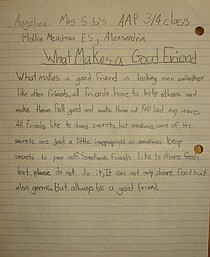 Angelica. Mrs. Sita's AAP 3/4 class
Hollin Meadows ES, Alexandria
What Makes a Good Friend
What makes a good friend is looking after
like other friends, all friends have to help others and
make them feel good and make them not feel bad any more.
All friends like to share secrets, but sometimes some of the
secrets are just a little inappropriate so sometimes keep
secrets to your self. Sometimes friends like to share food
but, please do not do it, it can not only share food but
also germs. But always be a good friend.